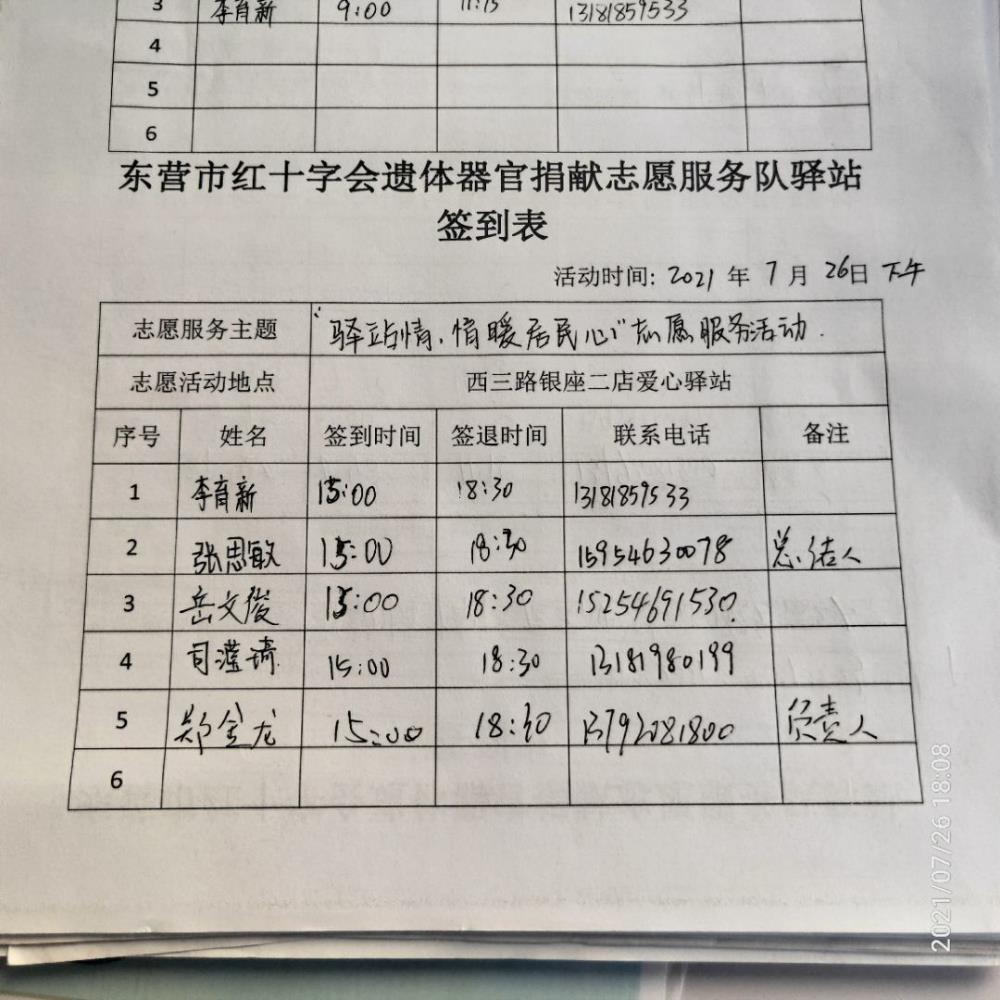 3 李育新 9:00 11:15 13181859533
4
5
6
东营市红十字会遗体器官捐献志愿服务队驿站
签到表
活动时间: 2021 年 7 月 26日 下午
志愿服务主题 "驿站情,情暖居民心"志愿服务活动.
志愿活动地点 西三路银座二店爱心驿站
序号 姓名 签到时间 签退时间 联系电话 备注
1 李育新 15:00 18:30 13181859533
2 张思敏 15:00 18:30 15954630078 总结人
3 岳文俊 15:00 18:30 15254691530.
4 司滢琦 15:00 18:30 13181980199
5 郑金龙 15:00 18:30 13792081800 负责人
6
2021/07/26 18:08